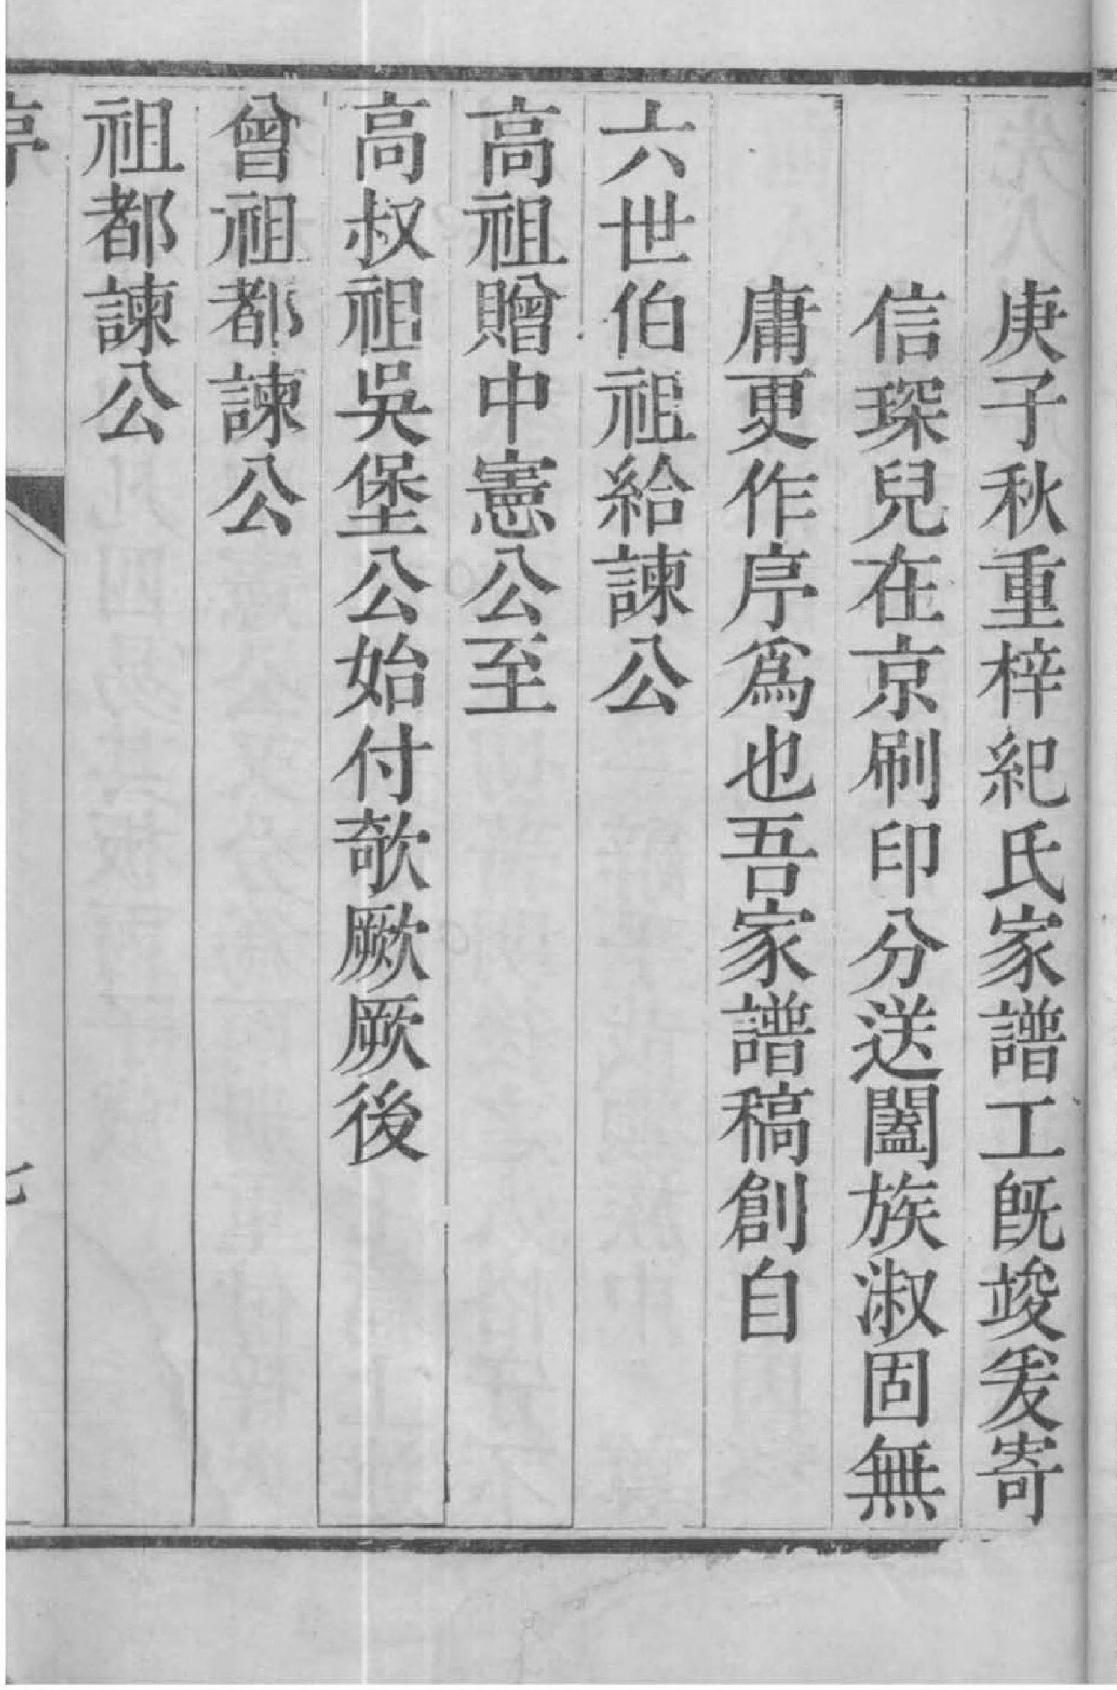 庚子秋重梓紀氏家譜工旣竣爰寄
信琛兒在京刷印分送闔族淑固無
庸更作序爲也吾家譜稿創自
六世伯祖給諫公
高祖贈中憲公至
高叔祖吳堡公始付欹厥厥後
曾祖都諫公
祖都諫公